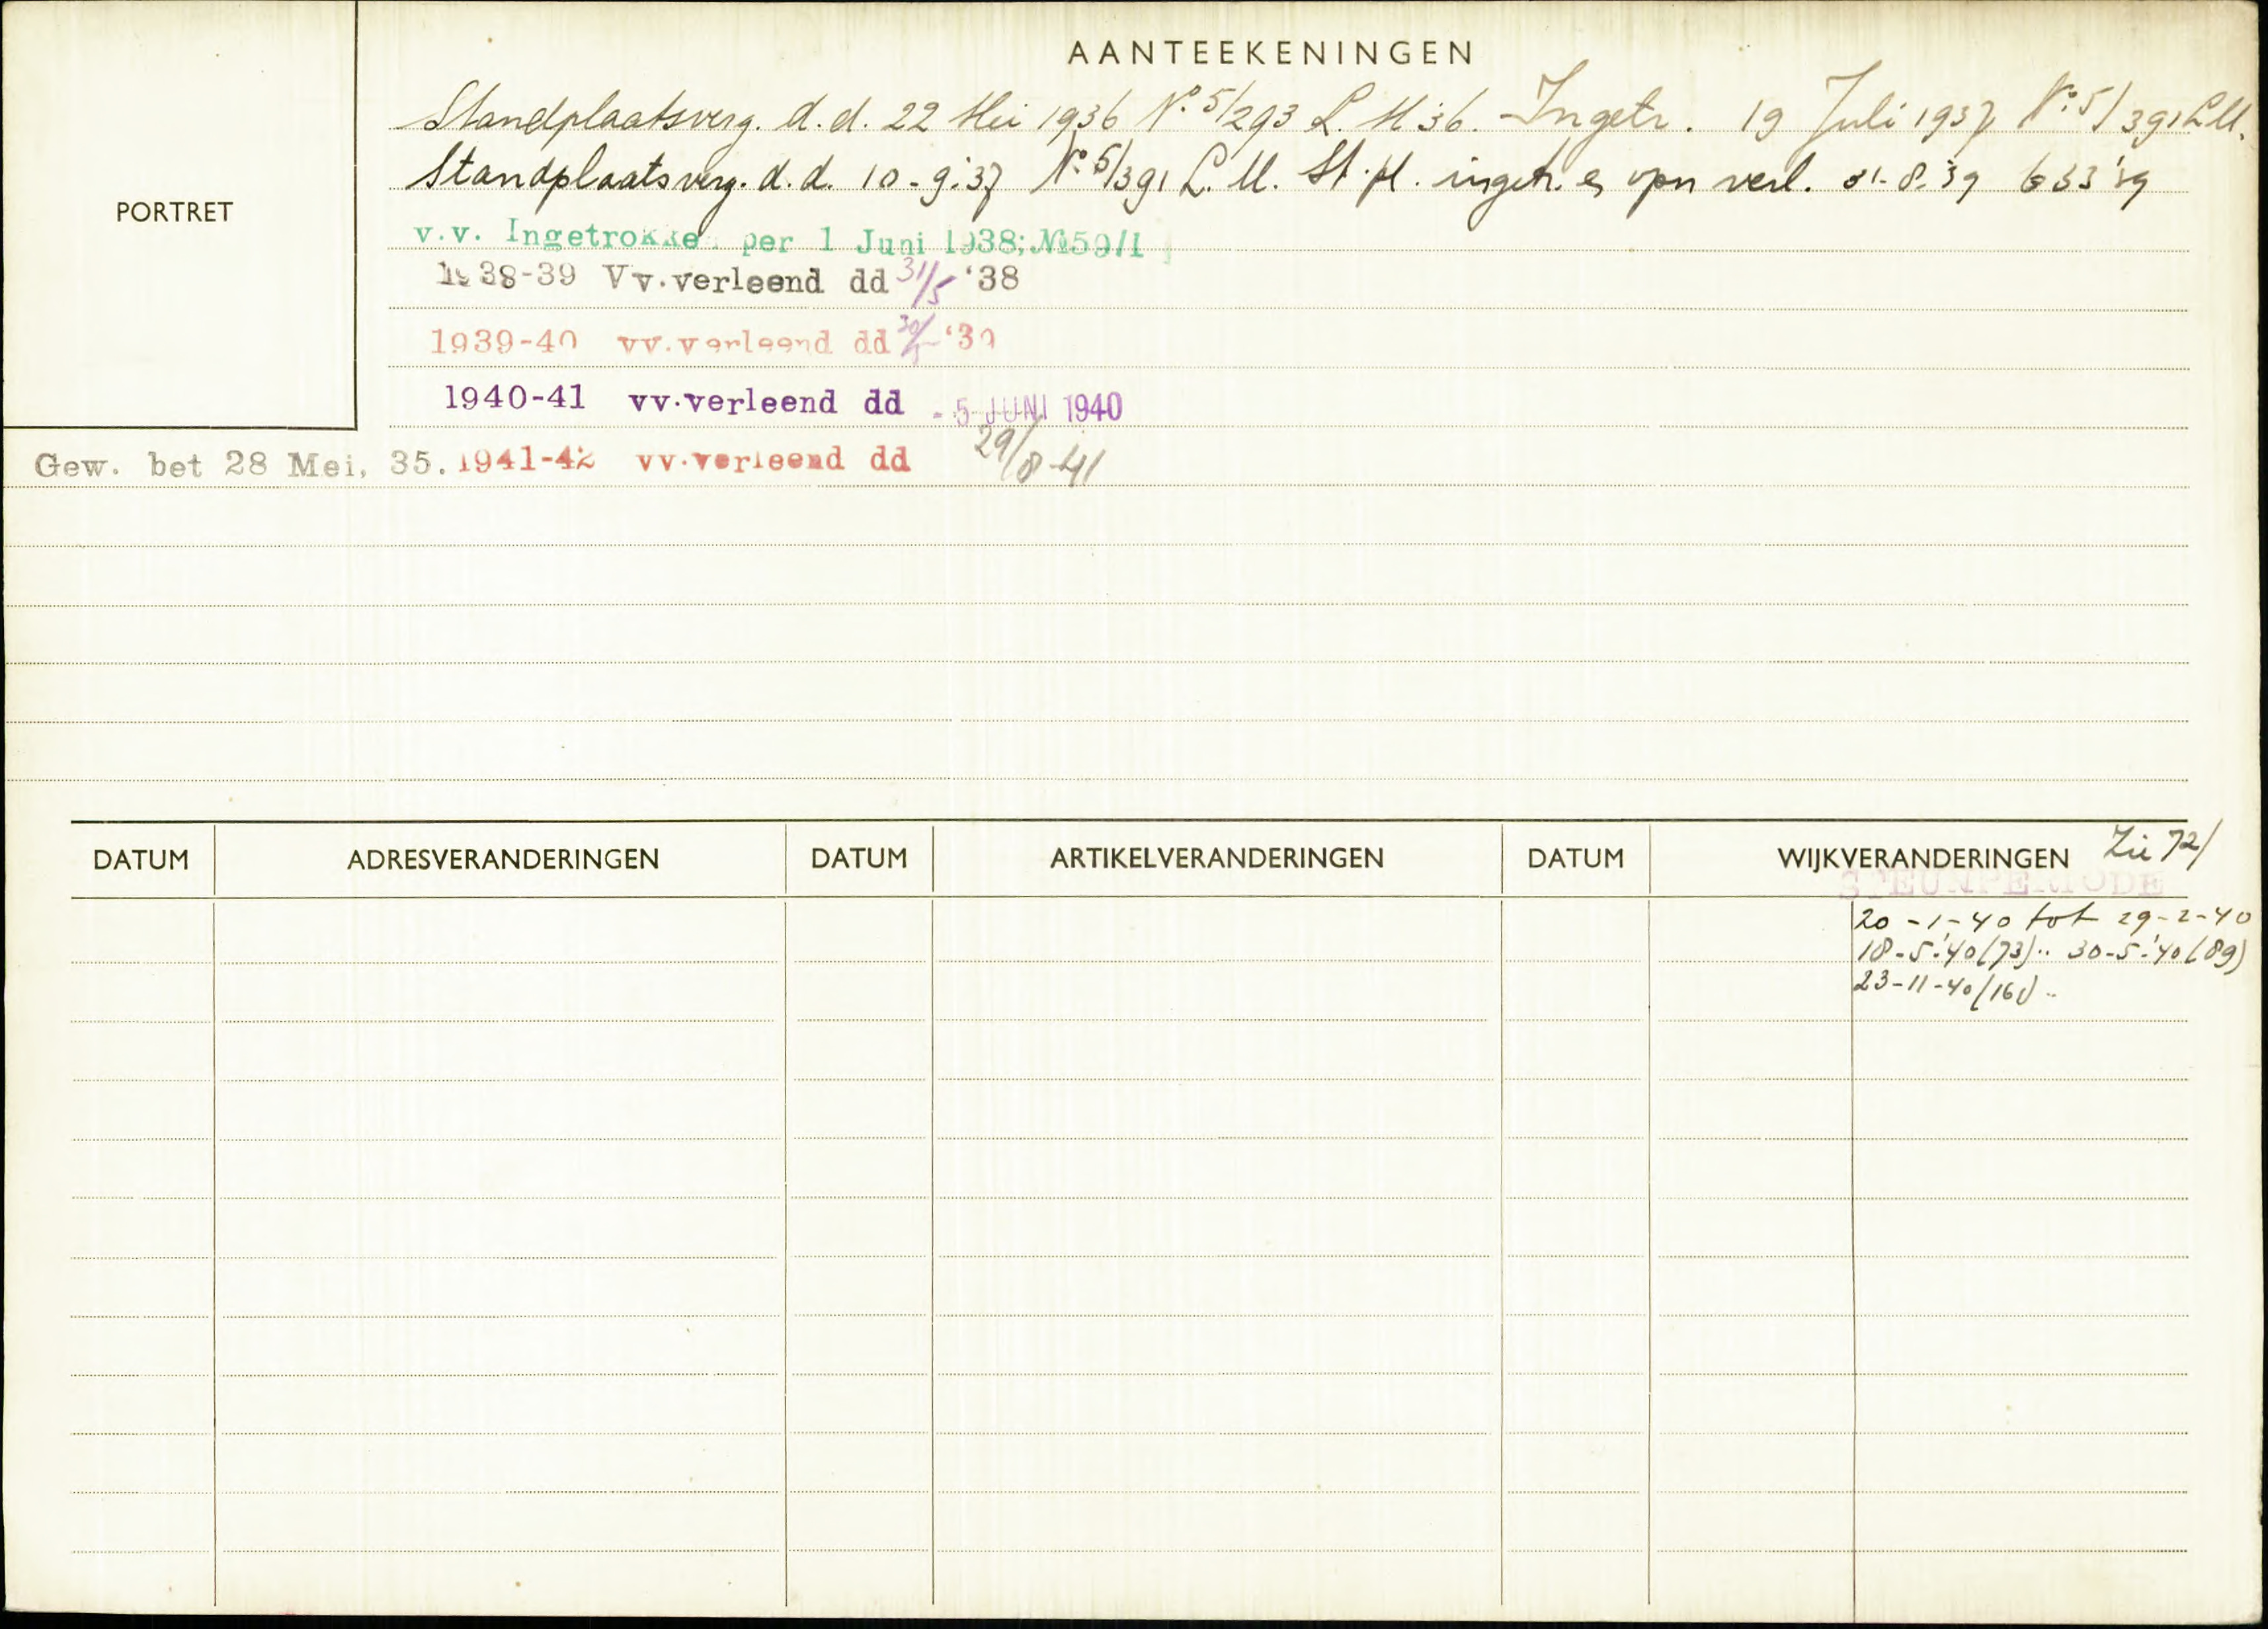 AANTEEKENINGEN
Standplaatsverg. d.d. 22 Mei 1936 No. 5/293 L.M. 36. Ingetr. 19 Juli 1937 No. 5/391 L.M.
Standplaatsverg. d.d. 10-9-'37 No. 5/391 L.M. St.pl. ingetr. verl. 31-8-'39 633 '39
PORTRET
v.v. Ingetrokken per 1 Juni 1938; No 59/1
1938-39 Vv.verleend dd 31/5 '38
1939-40 vv.verleend dd 30/5 '39
1940-41 vv.verleend dd - 5 JUNI 1940
Gew. bet 28 Mei, 35. 1941-42 vv.verleend dd 29/8-41
DATUM ADRESVERANDERINGEN DATUM ARTIKELVERANDERINGEN DATUM WIJKVERANDERINGEN Zie 72/
STEUNPERIODE
20-1-40 tot 29-2-40
18-5-'40 (73) .. 30-5-'40 (89)
23-11-40 (161) ..